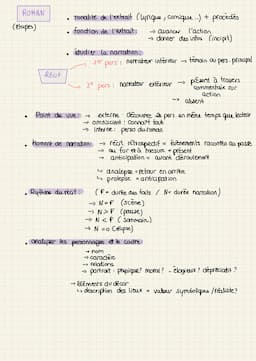 ROMAN
(étapes)
• tonalité de l'extrait (lyrique, comique...) + procédés
• fonction de l'extrait: → avancer l'action
→ donner des infos (incipit)
• étudier la narration:
RÉCIT
→ 1ère pers: narrateur intérieur → témoin ou pers. principal
→ 3e pers: narrateur extérieur → présent à travers
commentaire sur
action
→ absent
• Point de vue: → externe: découvre le pers en même temps que lecteur
→ omniscient: connaît tout
→ interne: perso du roman
• Moment de narration: → récit rétrospectif = évènements racontés au passé
→ au fur et à mesure = présent
→ anticipation = avant déroulement
↳ analepse = retour en arrière
↳ prolepse = anticipation
• Rythme du récit (F = durée des faits / N = durée narration)
→ N = F (scène)
→ N > F (pause)
→ N < F (sommaire)
→ N = 0 (ellipse)
• analyser les personnages et le cadre:
→ nom
→ caractère
→ relations
→ portrait: physique? moral? - élogieux? dépréciatif?
→ éléments du décor
↳ description des lieux = valeur symbolique / réaliste?